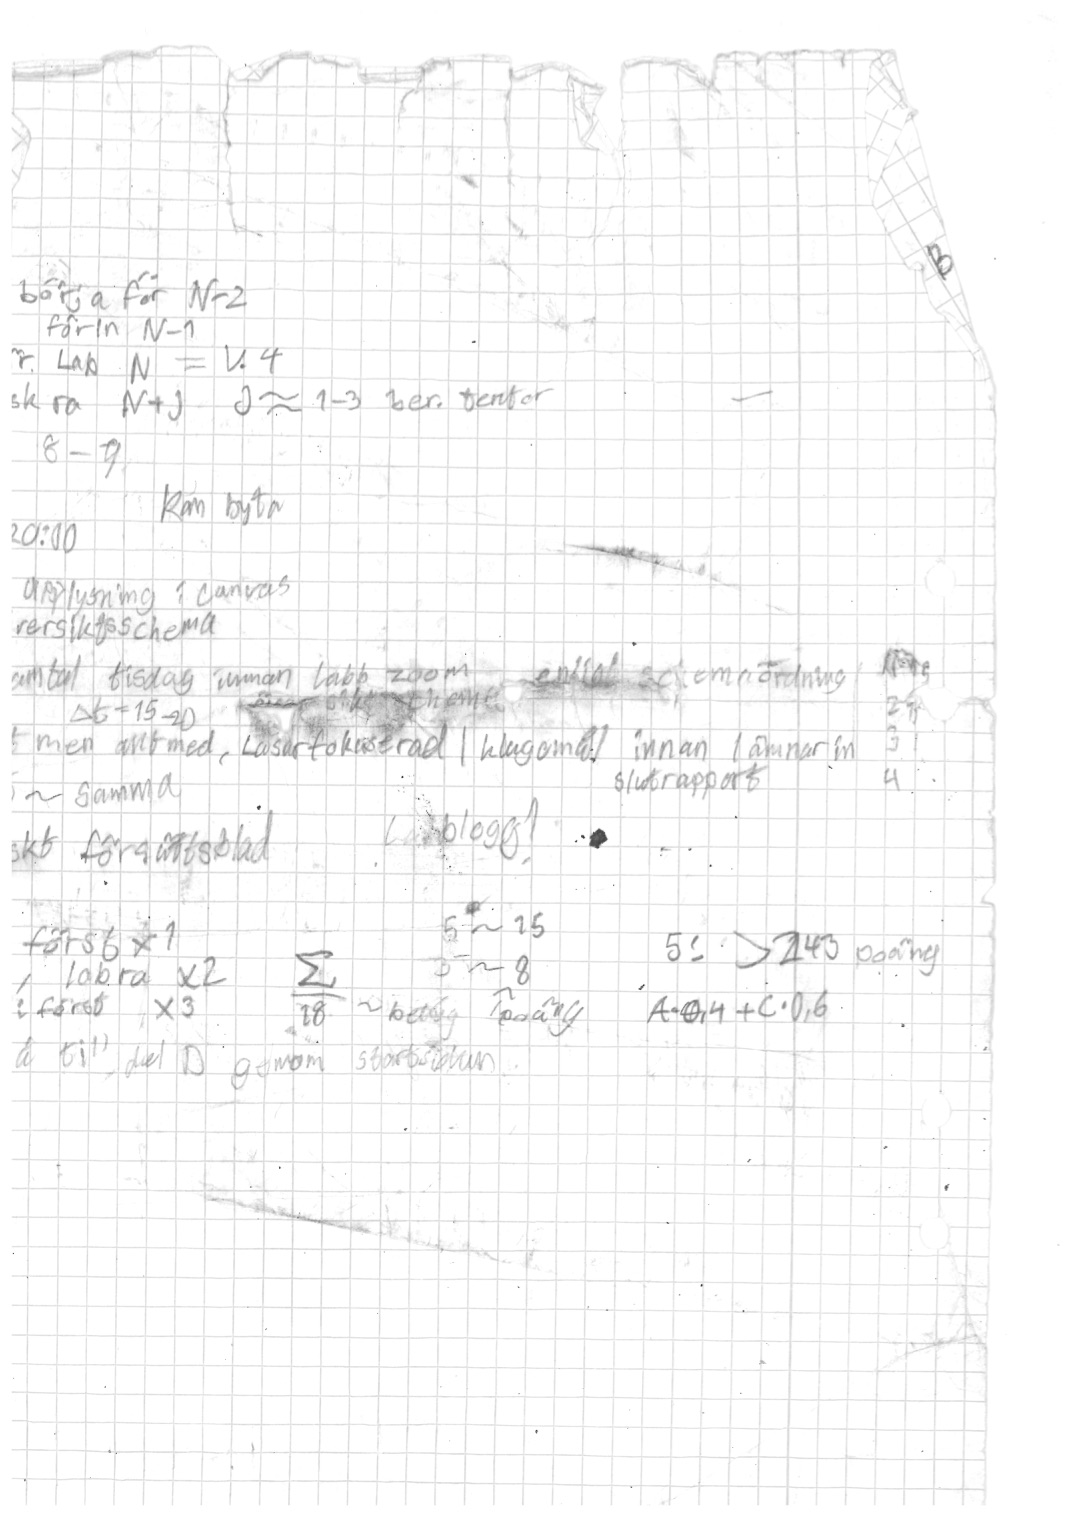 B
börja för N-2
förin N-1
r. Lab N = V. 4
skra N+J J ≈ 1-3 ber. tentor
8 - 9
Kan byta
20:10
upplysning i canvas
versiktsschema
amtal tisdag innan labb zoom enligt schemaördning
Δt = 15-20 2
t men allt med, Läsarfokuserad | klagomål innan lämnar in 3
~ samma slutrapport 4
skt försättsblad blogg!
först x1 5 ~ 15 5: > 243 poäng
, labra x2 Σ 3 ~ 8
i först x3 18 ~ betyg poäng A·0,4 + C·0,6
å till del D genom startsidan